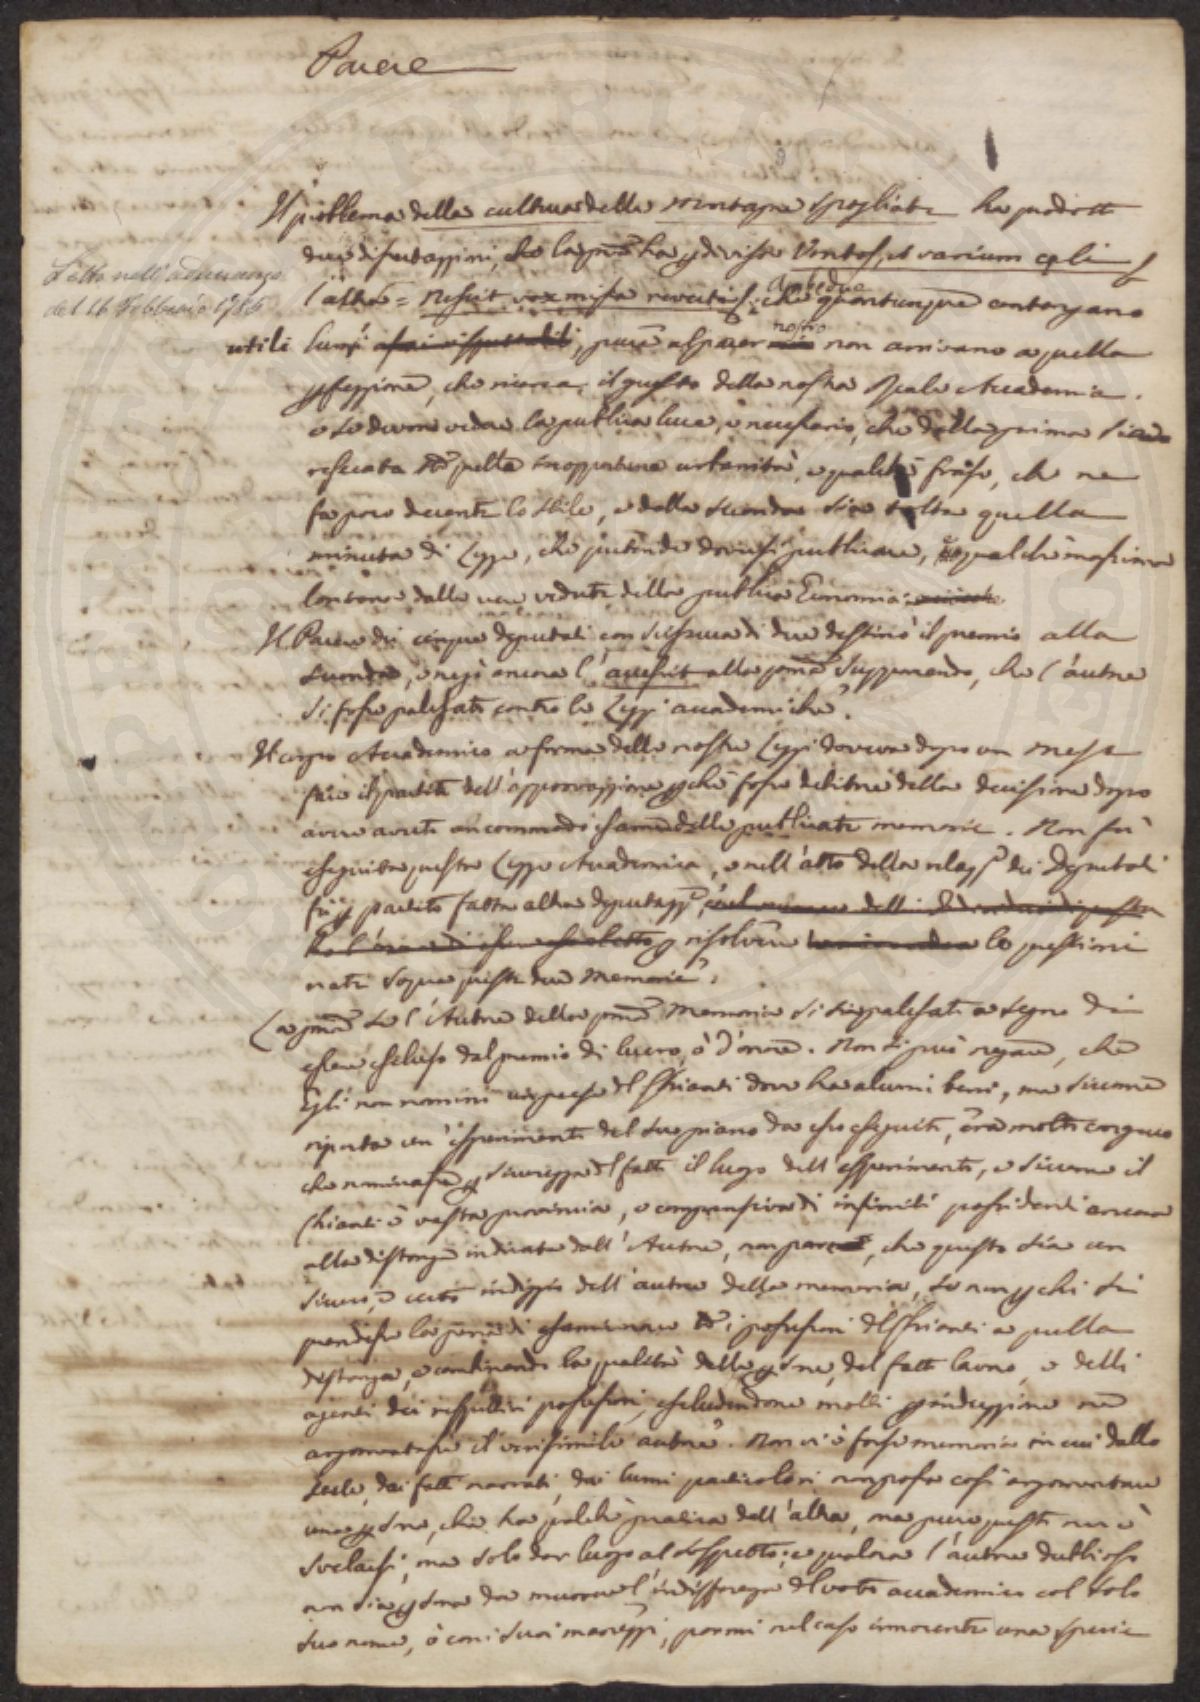 Parere
Il problema della cultura delle montagne spogliate ha prodotti
due dissertazzioni, che la pma ha p divisa Ventos, et varium celi
Letta nell'adunanza
del 16 Febbraio 1786
l'altra = nescit vox missa reverti Ambedue che quantunque contengano
utili lumi assai rispettabili, pure al parer mio nostro non arrivano a quella
pfezzione, che ricerca il quesito della nostra Reale Accademia.
e se devon vedere la publica luce, è necessario, che dalla prima sia
resecata quella inopportuna urbanità, e qualche frase, che ne
fa poco decente lo stile, e dalla seconda sia tolta quella
minuta di Legge, che pretende doversi publicare, e qualche massima
lontana dalle vere vedute della publica Economia
Il Parere dei cinque deputati con di due destinò il premio alla
seconda, e negò ancora l'accessit alla pma supponendo, che l'autore
si fosse palesato contro le Leggi accademiche.
Il corpo Accademico a forma delle nostre Leggi doveva dopo un mese
fare il partito dell'approvazzione pche fosse della decisione dopo
avere avuto un commodo esame delle publicate memorie. Non fù
eseguita questa Legge Accademica, e nell'atto della relazze dei Deputati
fù p partito fatta altra deputazze, p risolvere le questioni
nate sopra queste due Memorie.
La pma se l'Autore della pma Memoria si sia palesato a segno di
essere escluso dal premio di lucro, ò d'onore. Non si può negare, che
Egli non nomini un paese del Chianti dove ha alcuni beni, ma siccome
riporta un' esperimento del suo piano da esso eseguito, era molto congruo
che nominasse p sicurezza del fatto il luogo dell'esperimento, e siccome il
Chianti è vasta provincia, e comprensiva di infiniti possidenti ancora
alla distanza indicata dall'Autore, non pare, che questo sia un
sicuro, e certo indizzio dell'autore della memoria, se non p chi si
prendesse la pena di esaminare i possessori del Chianti a quella
distanza, e combinando la qualità delle psone, del fatto lavoro, e delli
agenti dei rispettivi possessori, escludendone molti p induzzione ne
argomentasse il verisimile autore. Non vi è forse memoria in cui dallo
stile, dai fatti narrati, dai lumi particolari non possa così argomentare
una psona, che ha qualche pratica dell'altra, ma pure questo non è
svelarsi, ma solo dar luogo al sospetto; e qualora l'autore dubbioso
non sia psona da muovere l'indifferenza del voto accademico col solo
suo nome, ò con i suoi maneggi, parmi nel caso innocente una specie